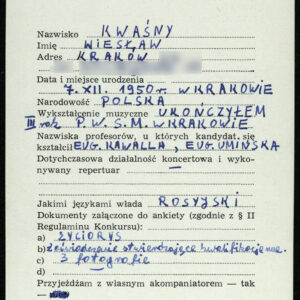 Nazwisko KWAŚNY
Imię WIESŁAW
Adres KRAKÓW
Data i miejsce urodzenia
7.XII.1950r. W KRAKOWIE
Narodowość POLSKA
Wykształcenie muzyczne UKOŃCZYŁEM
III rok P.W.S.M. W KRAKOWIE
Nazwiska profesorów, u których kandydat się
kształcił EUG. KAWALLA, EUG. UMIŃSKA
Dotychczasowa działalność koncertowa i wyko-
nywany repertuar
Jakimi językami włada ROSYJSKI
Dokumenty załączone do ankiety (zgodnie z § II
Regulaminu Konkursu):
a) ŻYCIORYS
b) zaświadczenie stwierdzające kwalifikacje
c) 3 fotografie
d)
Przyjeżdżam z własnym akompaniatorem — tak
—